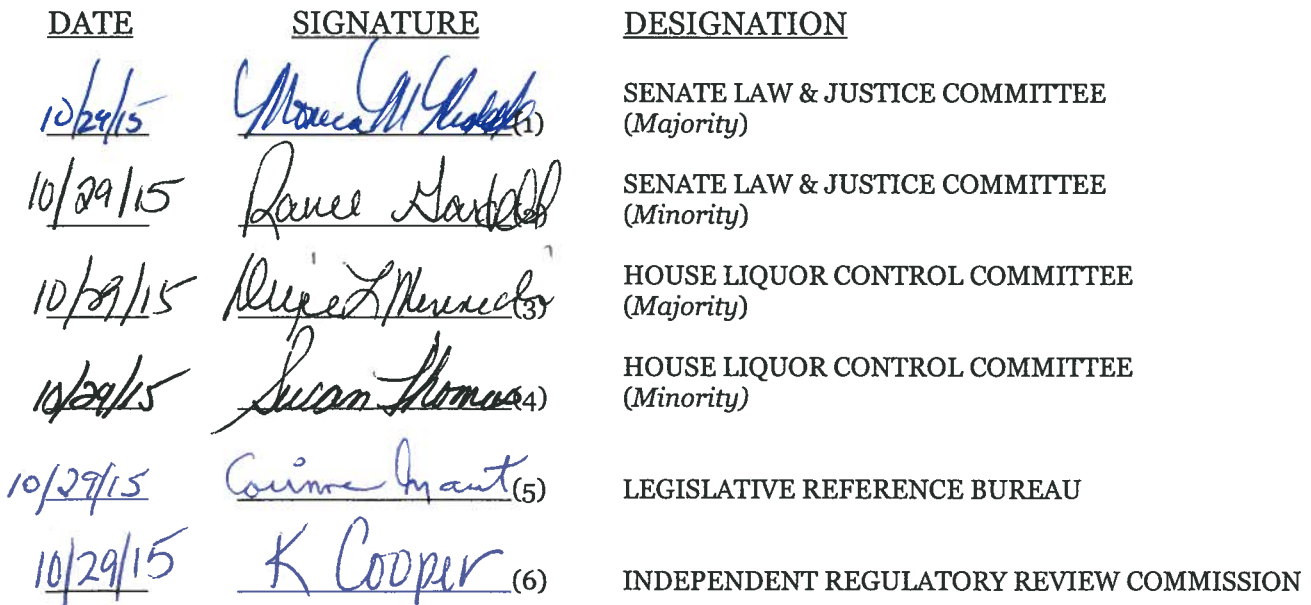 DATE SIGNATURE DESIGNATION
10/29/15 Monica M (1) SENATE LAW & JUSTICE COMMITTEE
(Majority)
10/29/15 (2) SENATE LAW & JUSTICE COMMITTEE
(Minority)
10/29/15 L (3) HOUSE LIQUOR CONTROL COMMITTEE
(Majority)
10/29/15 Susan Thomas (4) HOUSE LIQUOR CONTROL COMMITTEE
(Minority)
10/29/15 Corinne (5) LEGISLATIVE REFERENCE BUREAU
10/29/15 K Cooper (6) INDEPENDENT REGULATORY REVIEW COMMISSION